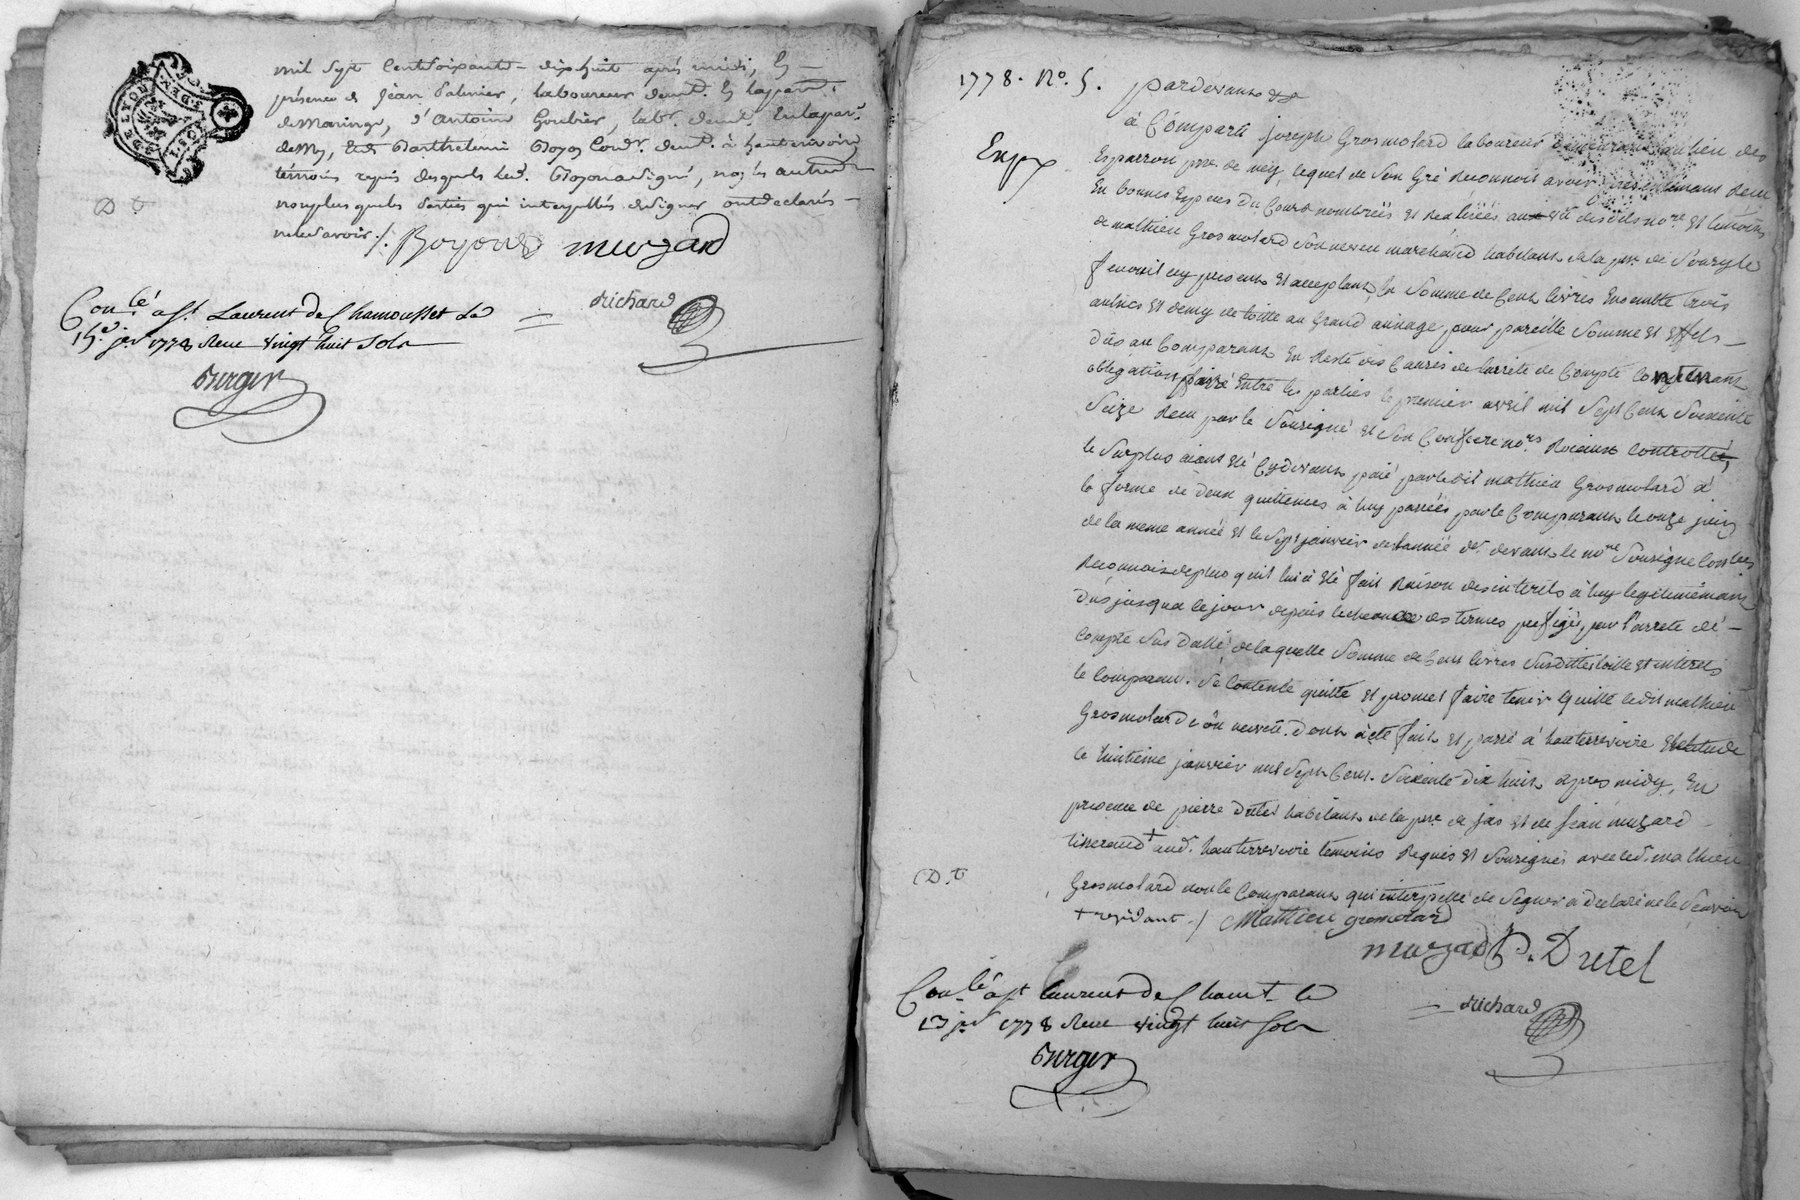 mil sept Cent soixante dix huit après midi, En
présence de Jean Palmier, laboureur demt. En la parr.
de Maringe, d'antoine Goubier, labr. demt. En la par.
de M, Et de Barthelemi Boyou Cordr. demt. à hauterivoire
témoins requis desquels led. Boyou a signé, non les autres
non plus que les parties qui interpellés de signer ont declarés
ne le savoir ./. Boyou Muzard
D. t
richard
Con.lé a St. Laurent de Chamousset le
15e. jer 1778 Reçu vingt huit sols
Berger
1778. No. 5. pardevant &a
à Comparû joseph Grosmolard laboureur demeurant au lieu des
Exp
Esparron psse. de mey, lequel de son Gré Reconnois avoir presentement Reçu
En bonnes Especes du Cours nombreës et Retireés aux vû desdits nore et temoins
de mathieu Grosmolard son neveu marchand habitant de la psse. de Souzy le
jeune icy present et acceptant, la somme de Cent livres Ensemble trois
aulnes et demy de toille au Grand aunage pour pareille somme et Effets
dûs au Comparant En Reste des Causes de larrête de Compte Contenant
obligation passé Entre les parties le premier avril mil sept Cent soixente
seize Recu par le sousigné et son Confrere nores Roieaux Controllé,
le surplus aiant été Cydevant paié par ledit mathieu Grosmolard à
la forme de deux quittences à luy passeés par le Comparant le onze juin
de la meme année et le sept janvier de lanneé der. devant le nore sousigné
Reconnois deplus quil lui à été fait Raison des interets à luy legitimement
Dûs jusqua ce jour depuis lecheance des termes prefigés par l'arrete de
Compte sus datté de laquelle somme de Cent livres susdittes toille et interets
le Comparant se Contente quitte et promet faire tenir quitte ledit mathieu
Grosmolard son neveu. dont acte fait et passé à hauterrivoire Etude
le huitieme janvier mil sept Cent soixente dix huit apres midy, En
presence de pierre Dutel habitant de la psse. de jas et de jean muzard
tisserand + aud. hauterrivoire temoins Requis et sousignés avec led. mathieu
D. t
Grosmolard non le Comparant qui interpellé de signer a declaré ne le sçavoir
+ residant ./ Mathieu gromolard
muzard P. Dutel
richard
Con.lé a St laurent de Chamt. le
13 jer 1778 Reçu vingt huit sols
Berger